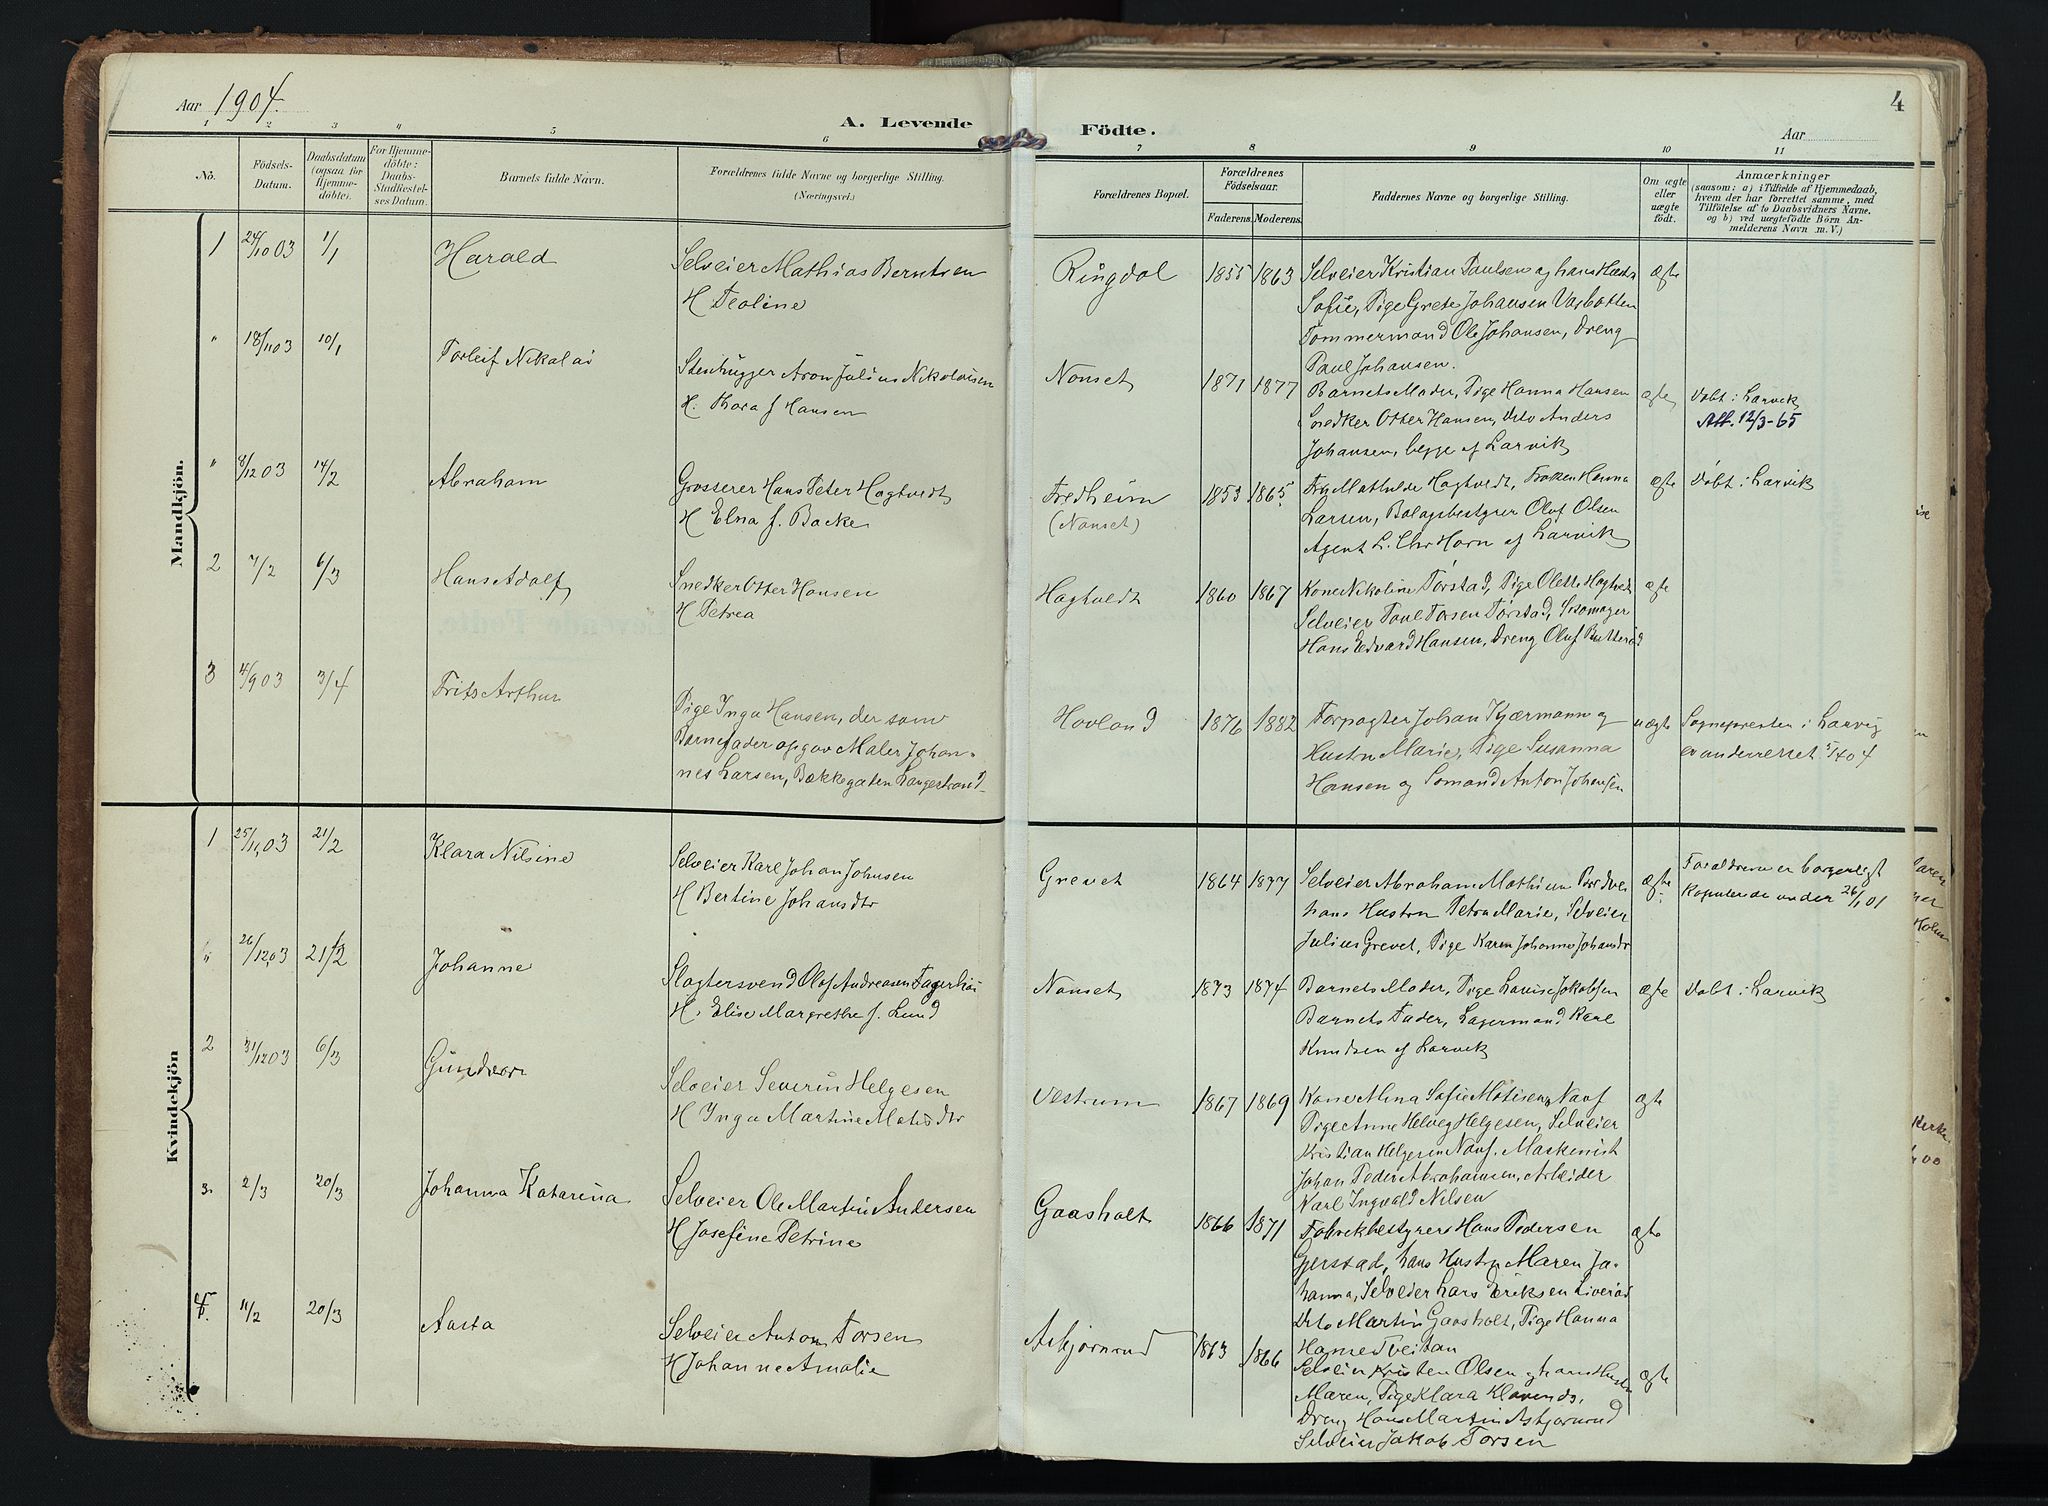 Aar 1904.
A. Levende
1 2 3 4 5 6
No.
Födsels-Datum.
Daabsdatum (ogsaa for Hjemmedöbte).
For Hjemmedöbte: Daabs-Stadfæstelses Datum.
Barnets fulde Navn.
Forældrenes fulde Navne og borgerlige Stilling.
(Næringsvei.)
Mandkjön.
1 24/10 03 1/1 Harald
Selveier Mathias Berntsen
H. Teoline
" 18/11 03 10/1 Torleif Nikolai
Stenhugger Aron Julius Nikolaisen
H. Thora f Hansen
" 8/12 03 14/2 Abraham
Grosserer Hans Peter Hagtvedt
H Elna f. Backe
2 7/2 6/3 Hans Adolf
Snedker Otter Hansen
H Petrea
3 4/9 03 3/4 Frits Arthur
Pige Inga Hansen, der som
Barnefader opgav Maler Johan-
nes Larsen, Bækkegaten Langestrand
Kvindekjön
1 25/11 03 21/2 Klara Nilsine
Selveier Karl Johan Johnsen
H Bertine Johansdtr
" 26/12 03 21/2 Johanne
Slagtersvend Olaf Andreasen Fagerhøi
H. Elise Margrethe f. Lund
2 31/12 03 6/3 Gunvor
Selveier Severin Helgesen
H Inga Martine Matisdtr
3. 2/3 20/3 Johanna Katarina
Selveier Ole Martin Andersen
H Josefine Petrine
4. 11/2 20/3 Aasta
Selveier Anton Torsen
H Johanne Amalie
Födte.
Aar
4
7 8 9 10 11
Forældrenes Bopæl.
Forældrenes Födselsaar.
Faderens. Moderens.
Faddernes Navne og borgerlige Stilling.
Om ægte eller uægte födt.
Anmærkninger
(saasom: a) i Tilfælde af Hjemmedaab,
hvem der har forrettet samme, med
Tilföielse af to Daabsvidners Navne,
og b) ved uægtefödte Börn An-
melderens Navn m. V.)
Ringdal 1855 1863 Selveier Kristian Paulsen og hans Hustr ægte
Sofie, Pige Grete Johansen Varbotten
Tommermand Ole Johansen, Dreng
Paul Johansen.
Nanset 1871 1877 Barnets Moder, Pige Hanna Hansen ægte Døbt i Larvik
Snedker Otter Hansen, Dito Anders Att. 12/3-65
Johansen, begge af Larvik
Fredheim 1853 1865 Fru Mathilde Hagtvedt, Frøken Hanna ægte Døbt i Larvik
(Nanset) Larsen, Bolagsbestyrer Oluf Olsen
Agent L. Chr Horn af Larvik
Hagtvedt 1860 1867 Kone Nikoline Torstad, Pige Olette Hagtvedt ægte
Selveier Paul Torsen Torstad, Skomager
Hans Edvard Hansen, Dreng Oluf Butterød
Hovland 1876 1882 Forpagter Johan Kjærmann og uægte Sognepresten i Larvig
Hustru Marie, Pige Susanna er underrettet 5/4 04
Hansen og Sømand Anton Johansen
Grevet 1864 1877 Selveier Abraham Mathisen ægte Forældrene er borgerligt
hans Hustru Petra Marie, Selveier kopulerede under 26/1 01
Julius Grevet, Pige Karen Johanne Johansdtr
Nanset 1873 1874 Barnets Moder, Pige Louise Jakobsen ægte Døbt i Larvik
Barnets Fader, Lagermand Karl
Knudsen af Larvik
Vestrum 1867 1869 Kone Alma Sofie Matisen Nauf ægte
Pige Anne Helveg Helgesen, Selveier
Kristian Helgesen Nauf. Maskinist
Johan Peder Abrahamsen, Arbeider
Karl Ingvald Nilsen
Gaasholt 1866 1871 Fabrikbestyrer Hans Pedersen ægte
Gjerstad, hans Hustru Maren Jo-
hanna, Selveier Lars Eriksen Liverød
Dito Martin Gaasholt, Pige Hanna
Hamedveitan
Asbjørnrød 1863 1866 Selveier Kristen Olsen og hans Hustru ægte
Maren, Pige Klara Klavenes,
Dreng Hans Martin Asbjørnrød
Selveier Jakob Torsen